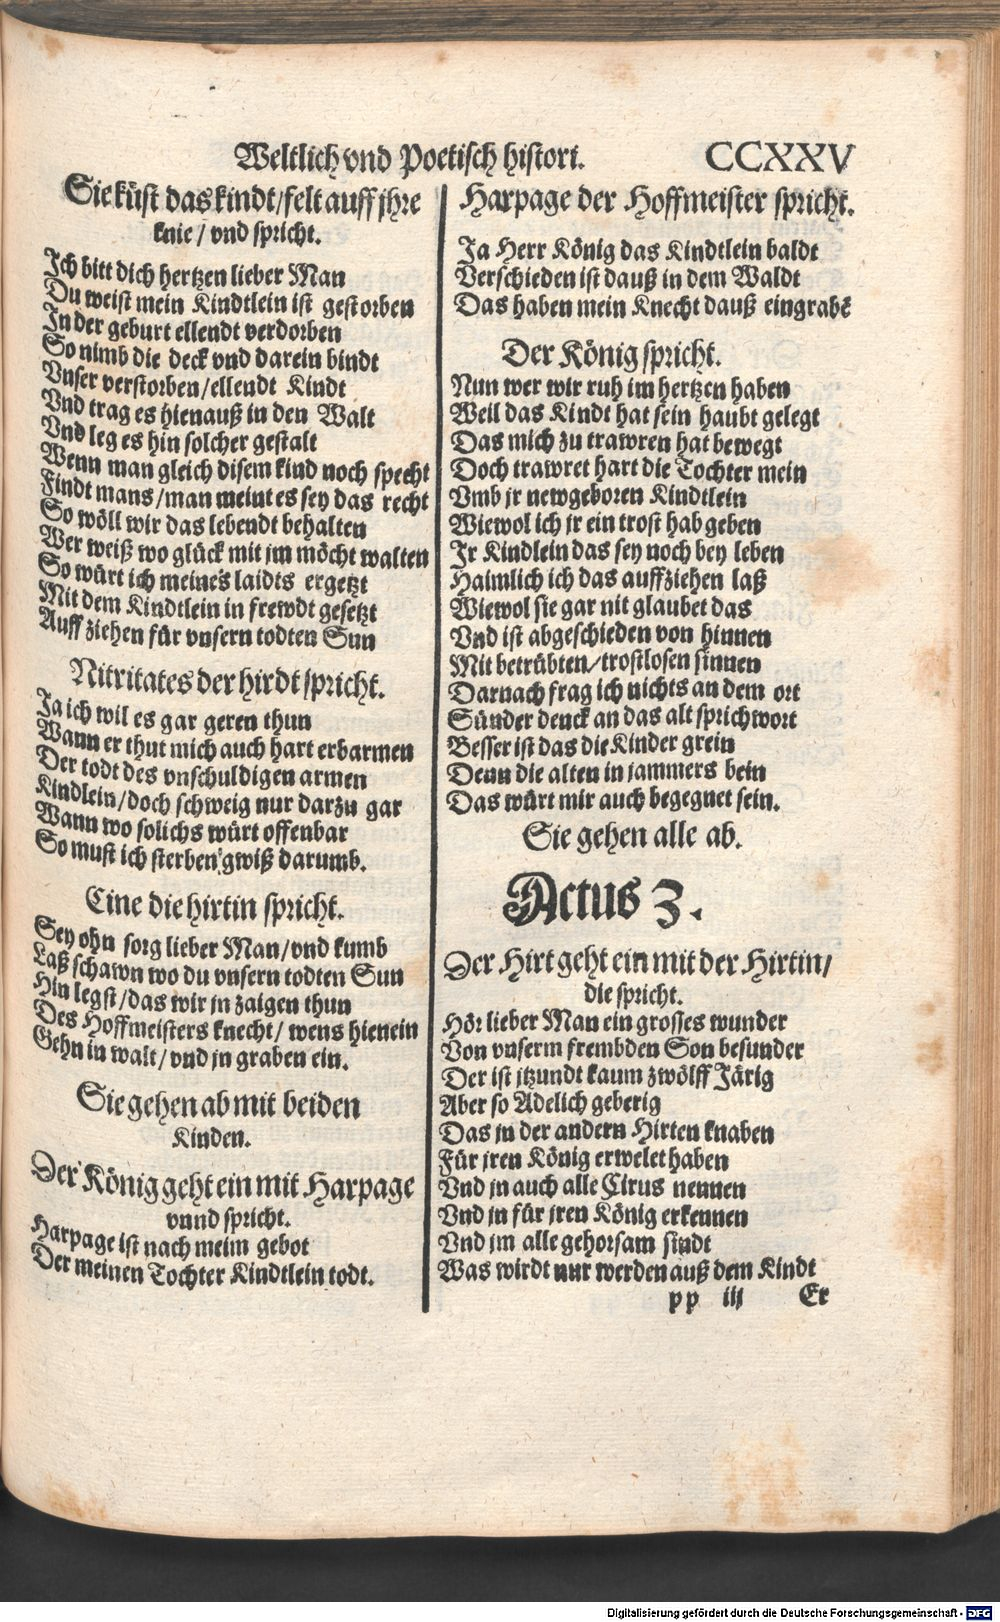 Weltlich vnd Poetisch histori. CCXXV
Sie küst das kindt/felt auff jhre
knie/ vnd spricht.
Ich bitt dich hertzen lieber Man
Du weist mein Kindtlein ist gestorben
In der geburt ellendt verdorben
So nimb die deck vnd darein bindt
Vnser verstorben/ellendt Kindt
Vnd trag es hienauß in den Walt
Vnd leg es hin solcher gestalt
Wenn man gleich disem kind noch specht
Findt mans/man meint es sey das recht
So wöll wir das lebendt behalten
Wer weiß wo glück mit jm möcht walten
So würt ich meines laidts ergetzt
Mit dem Kindtlein in frewdt gesetzt
Auff ziehen für vnsern todten Sun
Nitritates der hirdt spricht.
Ja ich wil es gar geren thun
Wann er thut mich auch hart erbarmen
Der todt des vnschuldigen armen
Kindlein/doch schweig nur darzu gar
Wann wo solichs würt offenbar
So must ich sterben gwiß darumb.
Cine die hirtin spricht.
Sey ohn sorg lieber Man/vnd kumb
Laß schawn wo du vnsern todten Sun
Hin legst/das wir jn zaigen thun
Des Hoffmeisters knecht/ wens hienein
Gehn in walt/vnd jn graben ein.
Sie gehen ab mit beiden
Kinden.
Der König geht ein mit Harpage
vnnd spricht.
Harpage ist nach meim gebot
Der meinen Tochter Kindtlein todt.
Harpage der Hoffmeister spricht.
Ja Herr König das Kindtlein baldt
Verschieden ist dauß in dem Waldt
Das haben mein Knecht dauß eingrabē
Der König spricht.
Nun wer wir ruh im hertzen haben
Weil das Kindt hat sein haubt gelegt
Das mich zu trawren hat bewegt
Doch trawret hart die Tochter mein
Vmb jr newgeboren Kindtlein
Wiewol ich jr ein trost hab geben
Ir Kindlein das sey noch bey leben
Haimlich ich das auffziehen laß
Wiewol sie gar nit glaubet das
Vnd ist abgeschieden von hinnen
Mit betrübten/trostlosen sinnen
Darnach frag ich nichts an dem ort
Sünder denck an das alt sprichwort
Besser ist das die Kinder grein
Denn die alten in jammers bein
Das würt mir auch begegnet sein.
Sie gehen alle ab.
Actus 3.
Der Hirt geht ein mit der Hirtin/
die spricht.
Hör lieber Man ein grosses wunder
Von vnserm frembden Son besunder
Der ist jtzundt kaum zwölff Järig
Aber so Adelich geberig
Das jn der andern Hirten knaben
Für jren König erwelet haben
Vnd jn auch alle Cirus nennen
Vnd jn für jren König erkennen
Vnd jm alle gehorsam sindt
Was wirdt nur werden auß dem Kindt
pp iij Er
Digitalisierung gefördert durch die Deutsche Forschungsgemeinschaft - DFG